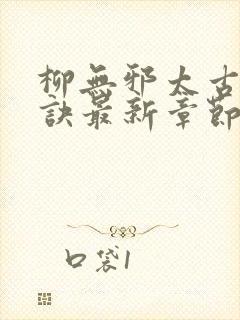 柳無邪太古
訣最新章節
口袋1